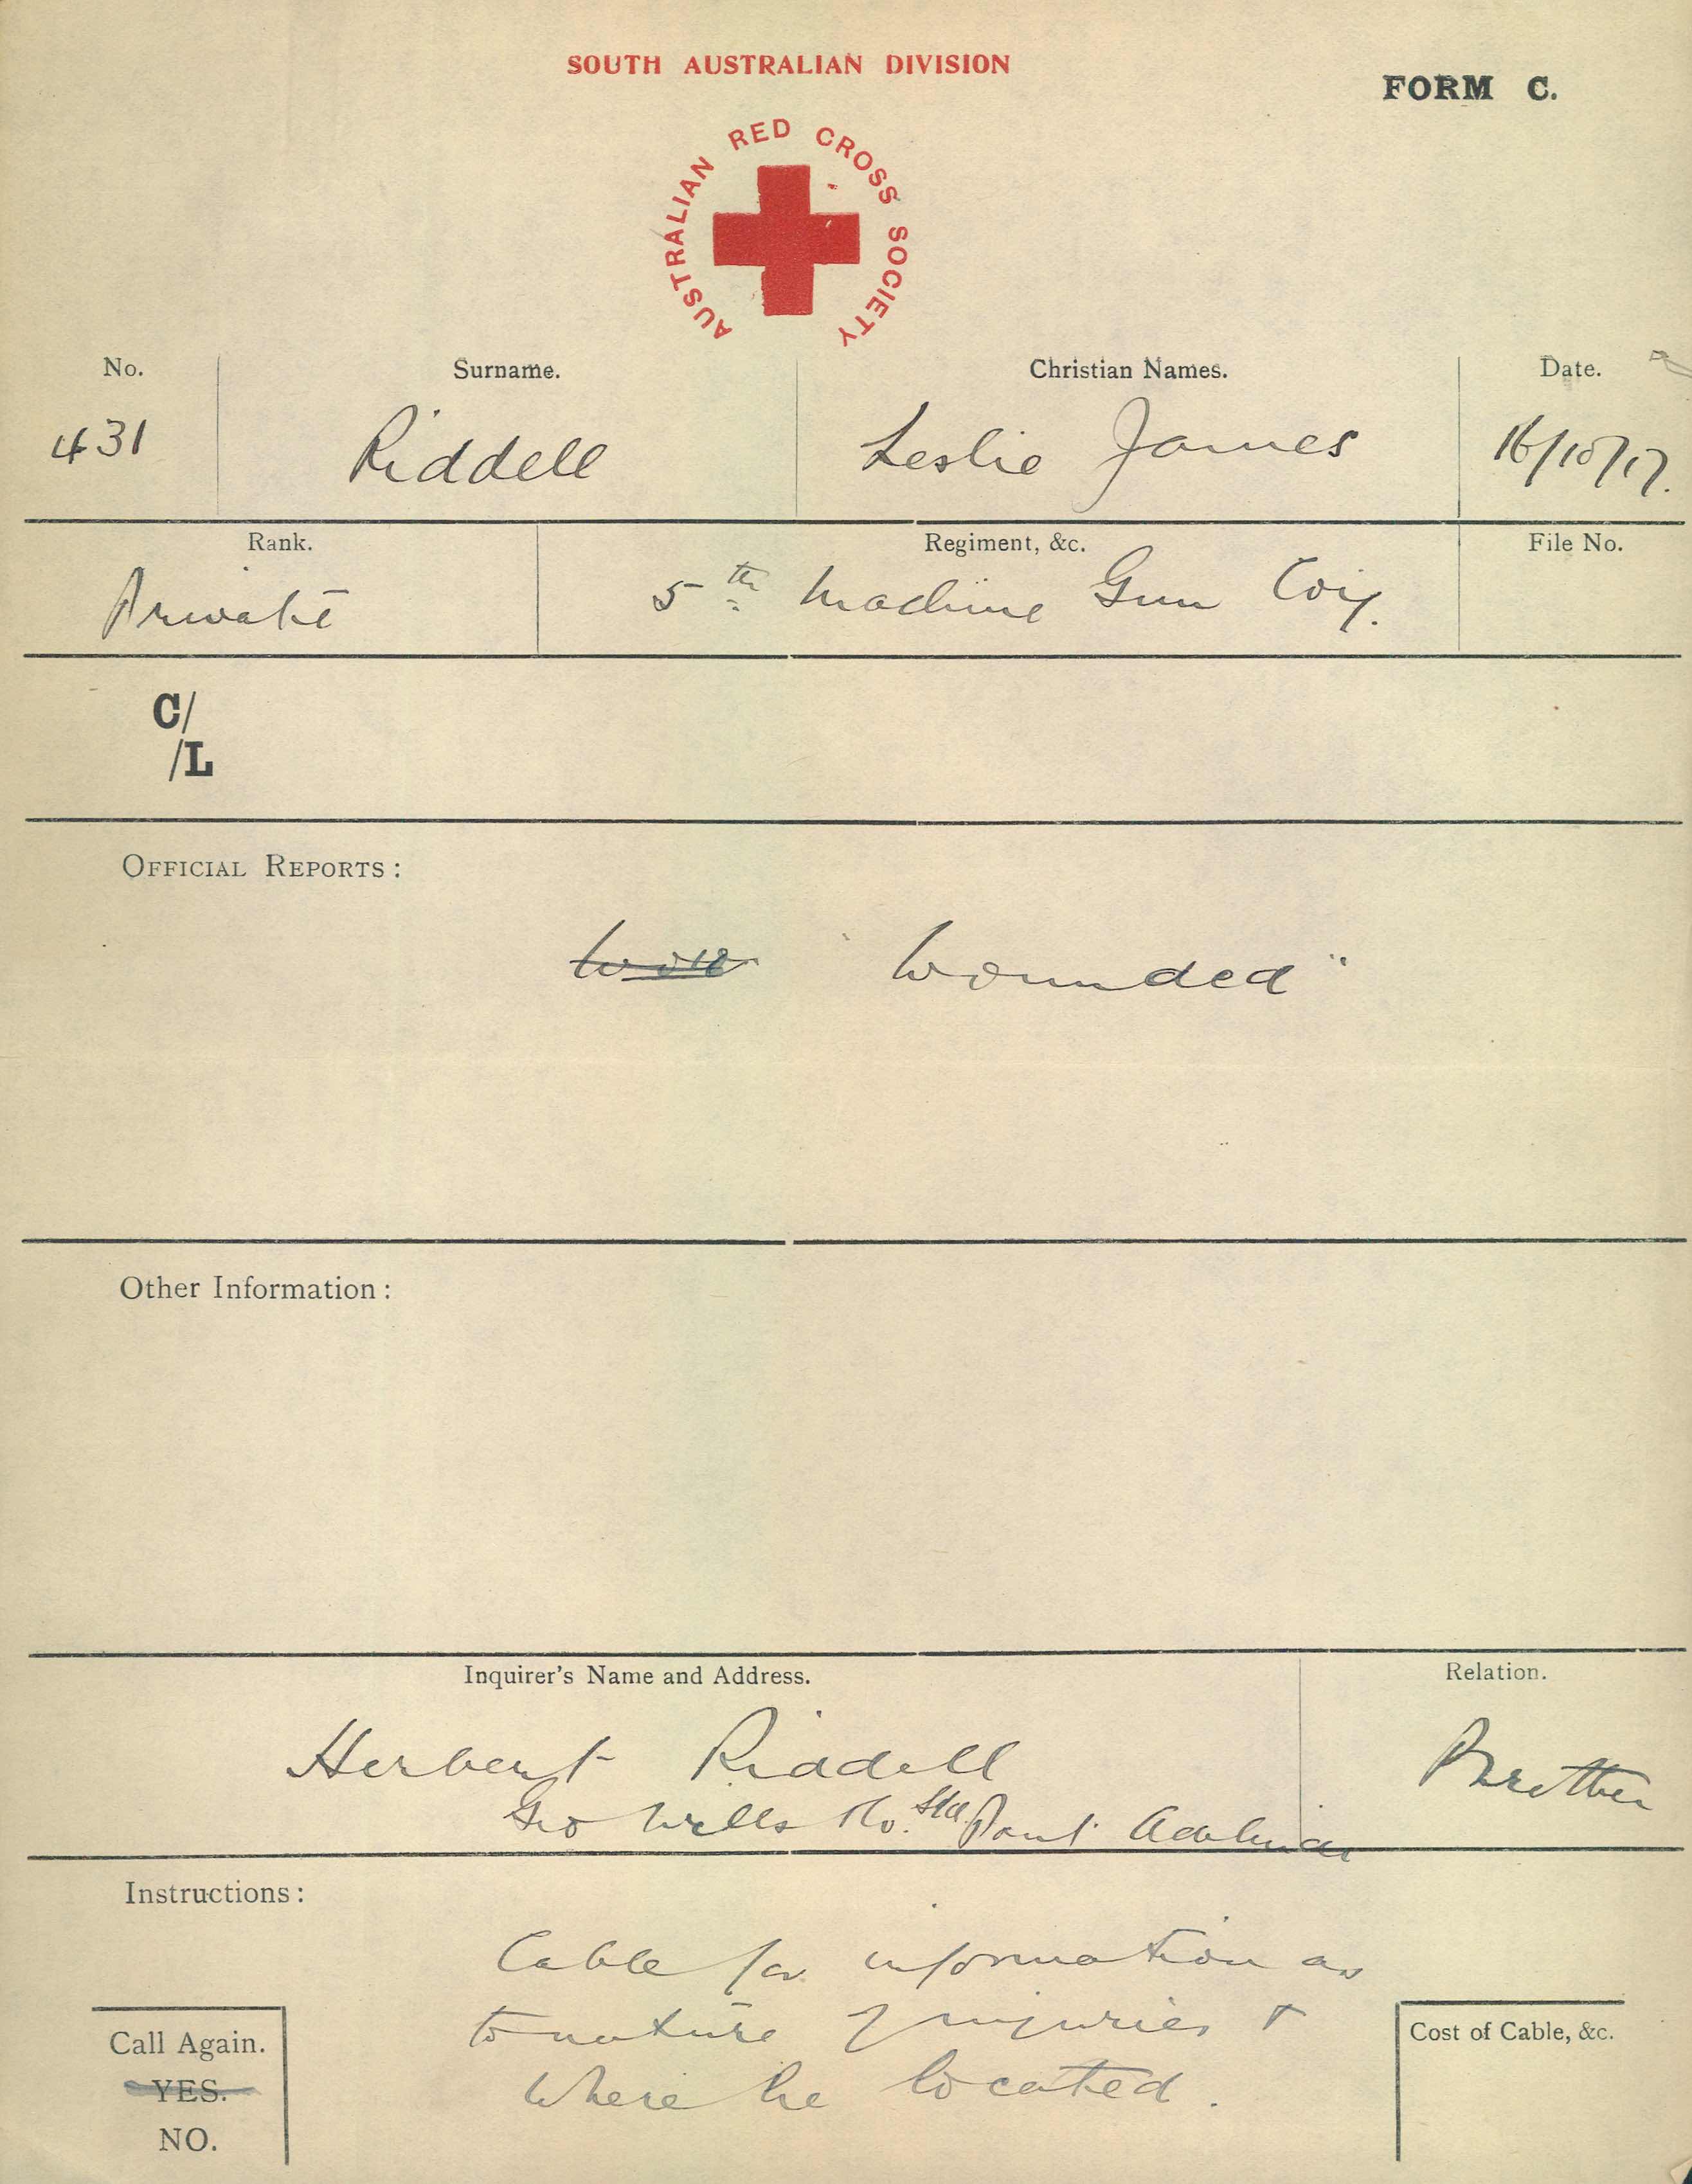 SOUTH AUSTRALIAN DIVISION
FORM C.
AUSTRALIAN RED CROSS SOCIETY
No. Surname. Christian Names. Date.
431 Riddell Leslie James 16/10/17.
Rank. Regiment, &c. File No.
Private 5th Machine Gun Coy.
C/
/L
OFFICIAL REPORTS:
"Wounded"
Other Information:
Inquirer's Name and Address. Relation.
Herbert Riddell Brother
Geo Wills & Co. Ltd Adelaide
Instructions:
Cable for information as
to nature of injuries &
where he located.
Call Again.
YES.
NO.
Cost of Cable, &c.